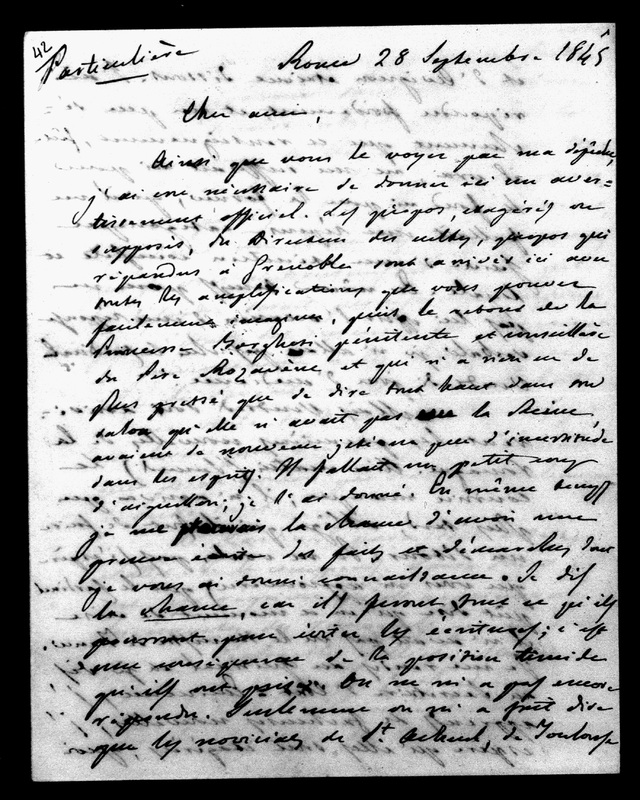 42
Particulière
Rome 28 Septembre 1845
Cher ami,
Ainsi que vous le voyez par ma dépêche,
j'ai cru nécessaire de donner ici un aver-
tissement officiel. Les propos, exagérés ou
supposés, du Directeur des cultes, propos qui
répandus à Grenoble sont arrivés ici avec
toutes les amplifications que vous pouvez
facilement imaginer, puis le retour de la
Princesse Borghese pénitente et conseillère
du Père Rozaven et qui n'a rien eu de
plus pressé que de dire tout haut dans son
salon qu'elle n'avait pas vu la Reine,
avaient de nouveau jeté un peu d'incertitude
dans les esprits. Il fallait un petit coup
d'aiguillon; je l'ai donné. En même temps
je me la chance d'avoir une
preuve écrite des faits et démarches dont
je vous ai donné connaissance. Je dis
la chance, car ils feront tout ce qu'ils
pourront pour éviter les écritures; c'est
une conséquence de la position timide
qu'ils ont prise. On ne m'a pas encore
répondu. Seulement on m'a fait dire
que les noviciats de St Acheul, de Toulouse